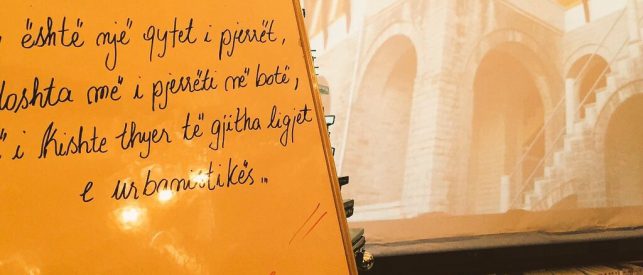 është një qytet i pjerrët,
më i pjerrëti në botë,
i kishte thyer të gjitha ligjet
e urbanistikës..